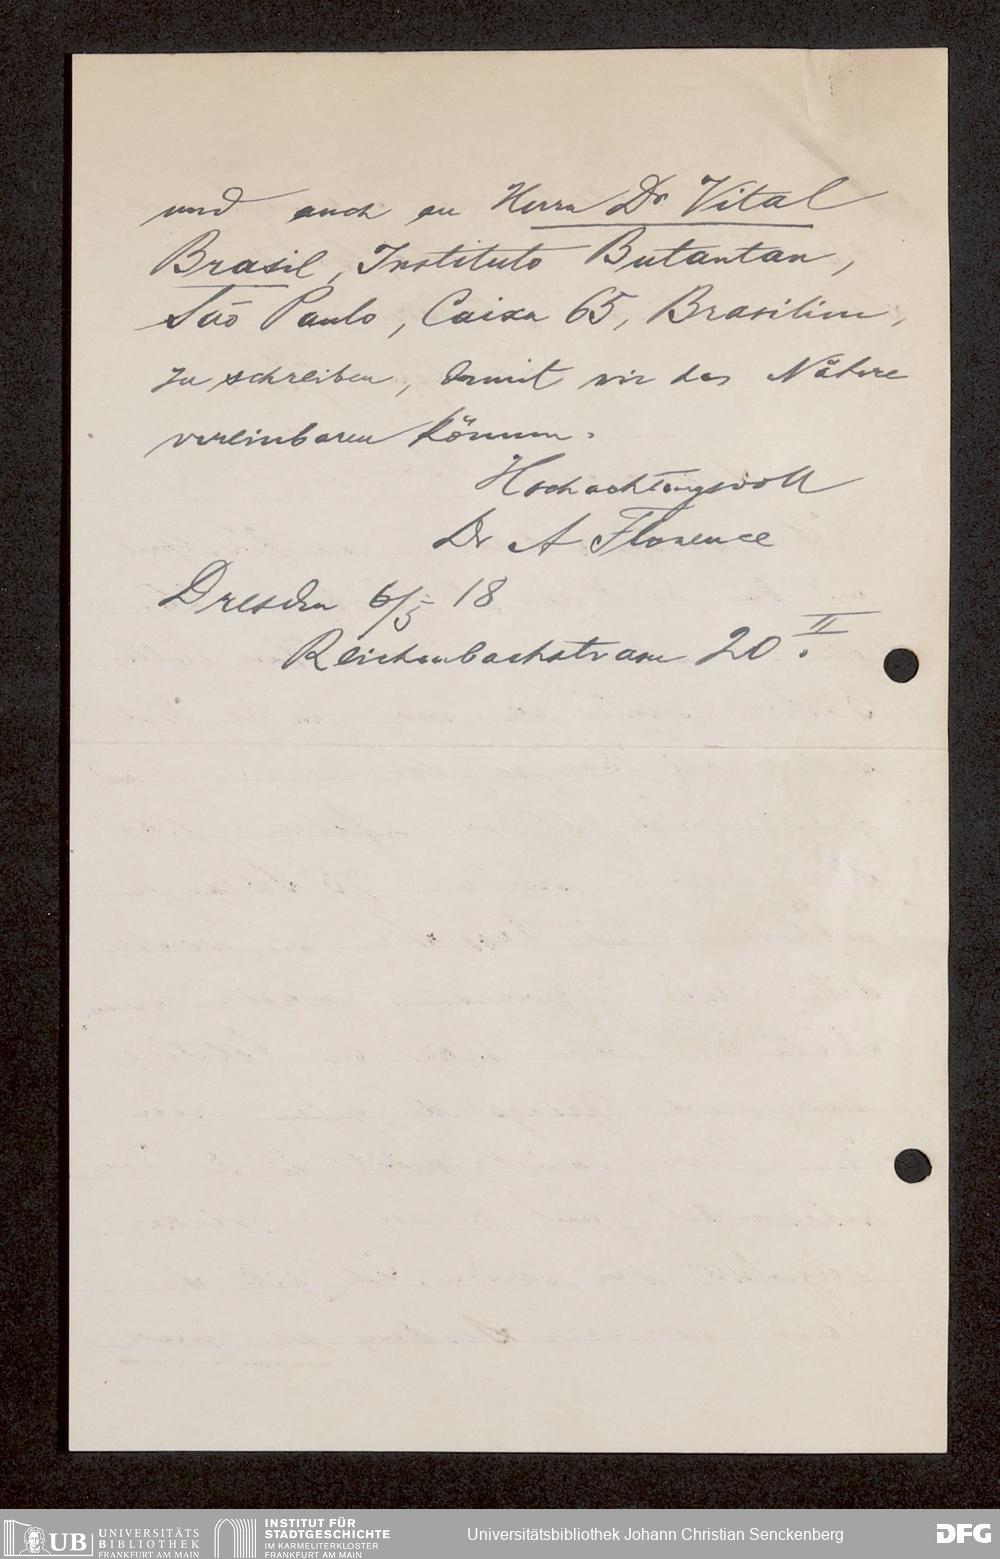 und auch an Herrn Dr Vital
Brasil, Instituto Butantan,
São Paulo, Caixa 65, Brasilien,
zu schreiben, damit wir das Nähere
vereinbaren können.
Hochachtungsvoll
Dr A Florence
Dresden 6/5 18
Reichenbachstrasse 20 II.
UB UNIVERSITÄTS
BIBLIOTHEK
FRANKFURT AM MAIN
INSTITUT FÜR
STADTGESCHICHTE
IM KARMELITERKLOSTER
FRANKFURT AM MAIN
Universitätsbibliothek Johann Christian Senckenberg
DFG